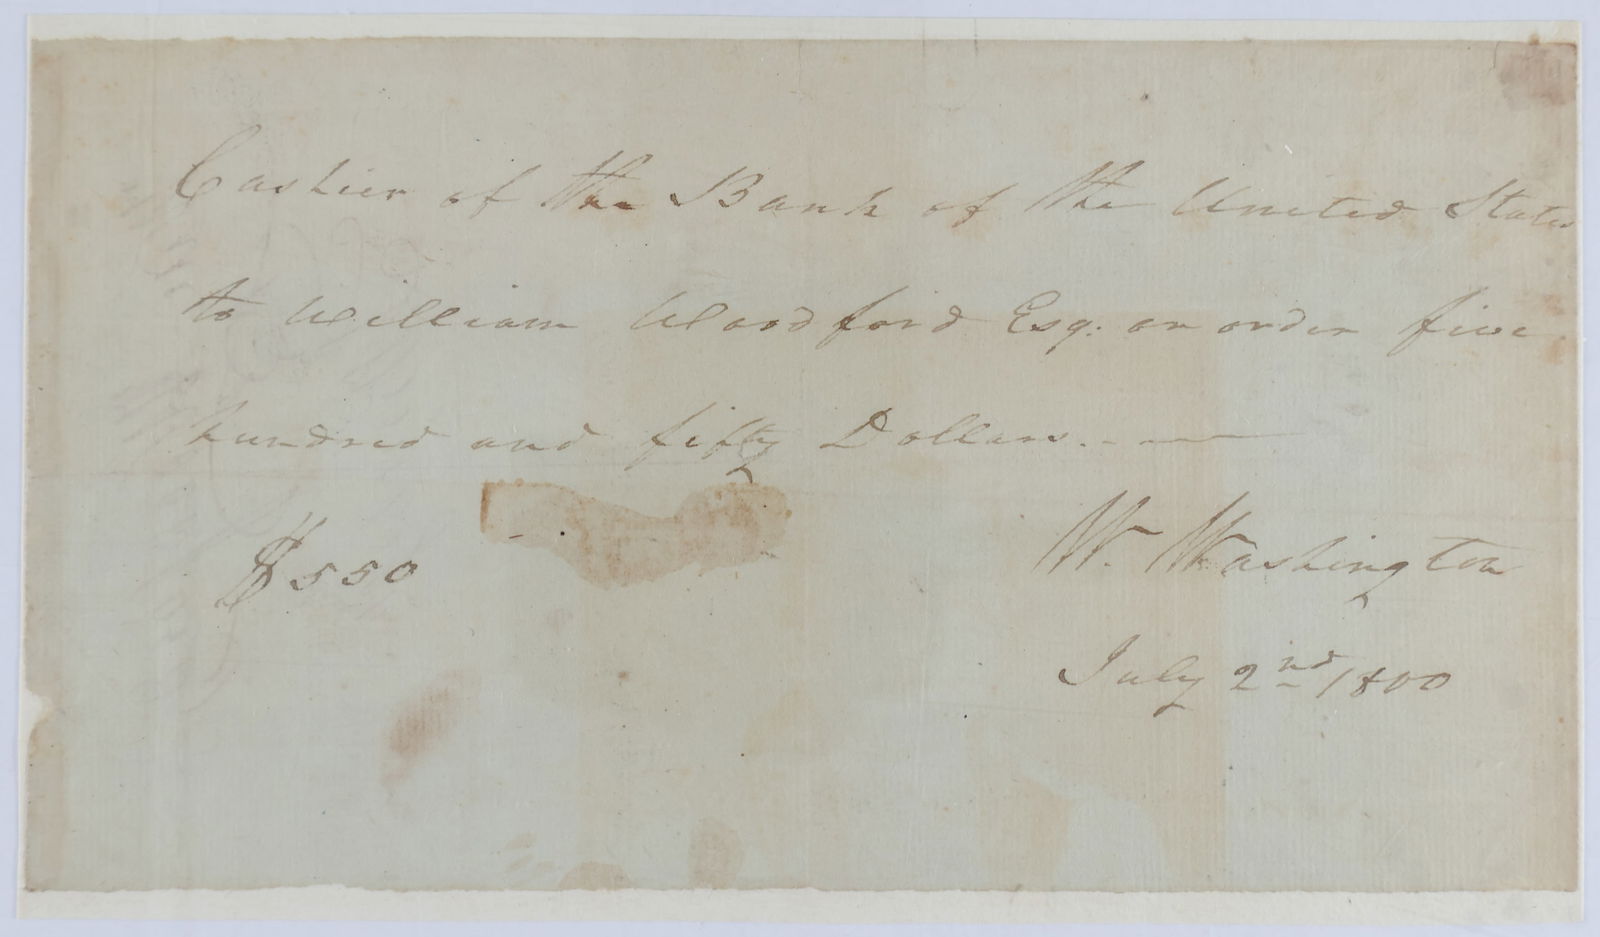 Cashier of the Bank of the United States
to William Woodford Esq: or order five
hundred and fifty Dollars.
$550
W. Washington
July 2nd 1800